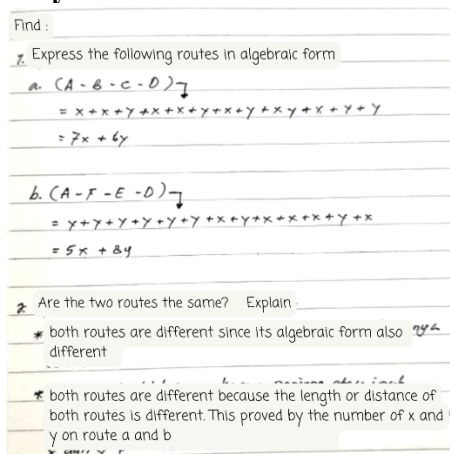 Find :
1. Express the following routes in algebraic form
a. (A - B - C - D)
= x + x + y + x + x + y + x + y + x y + x + y + y
= 7x + 6y
b. (A - F - E - D)
= y + y + y + y + y + y + x + y + x + x + x + y + x
= 5x + 8y
2. Are the two routes the same? Explain
* both routes are different since its algebraic form also
different
* both routes are different because the length or distance of
both routes is different. This proved by the number of x and
y on route a and b